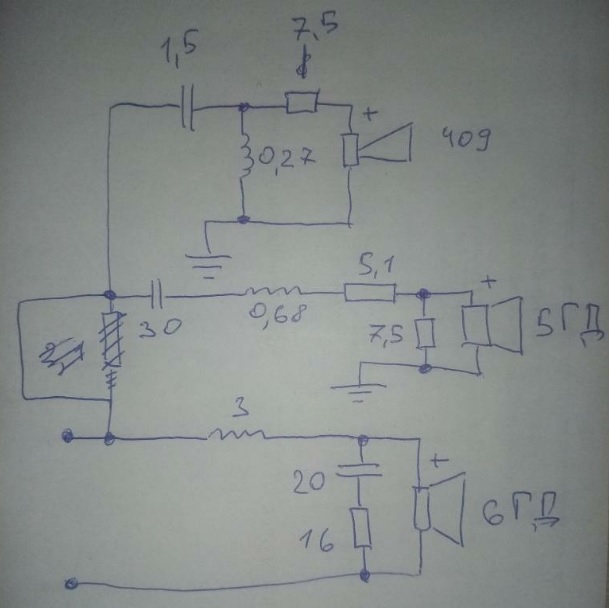 7,5
1,5
+
0,27
409
5,1
+
30
0,68
7,5
5ГД
3
+
20
16
6ГД